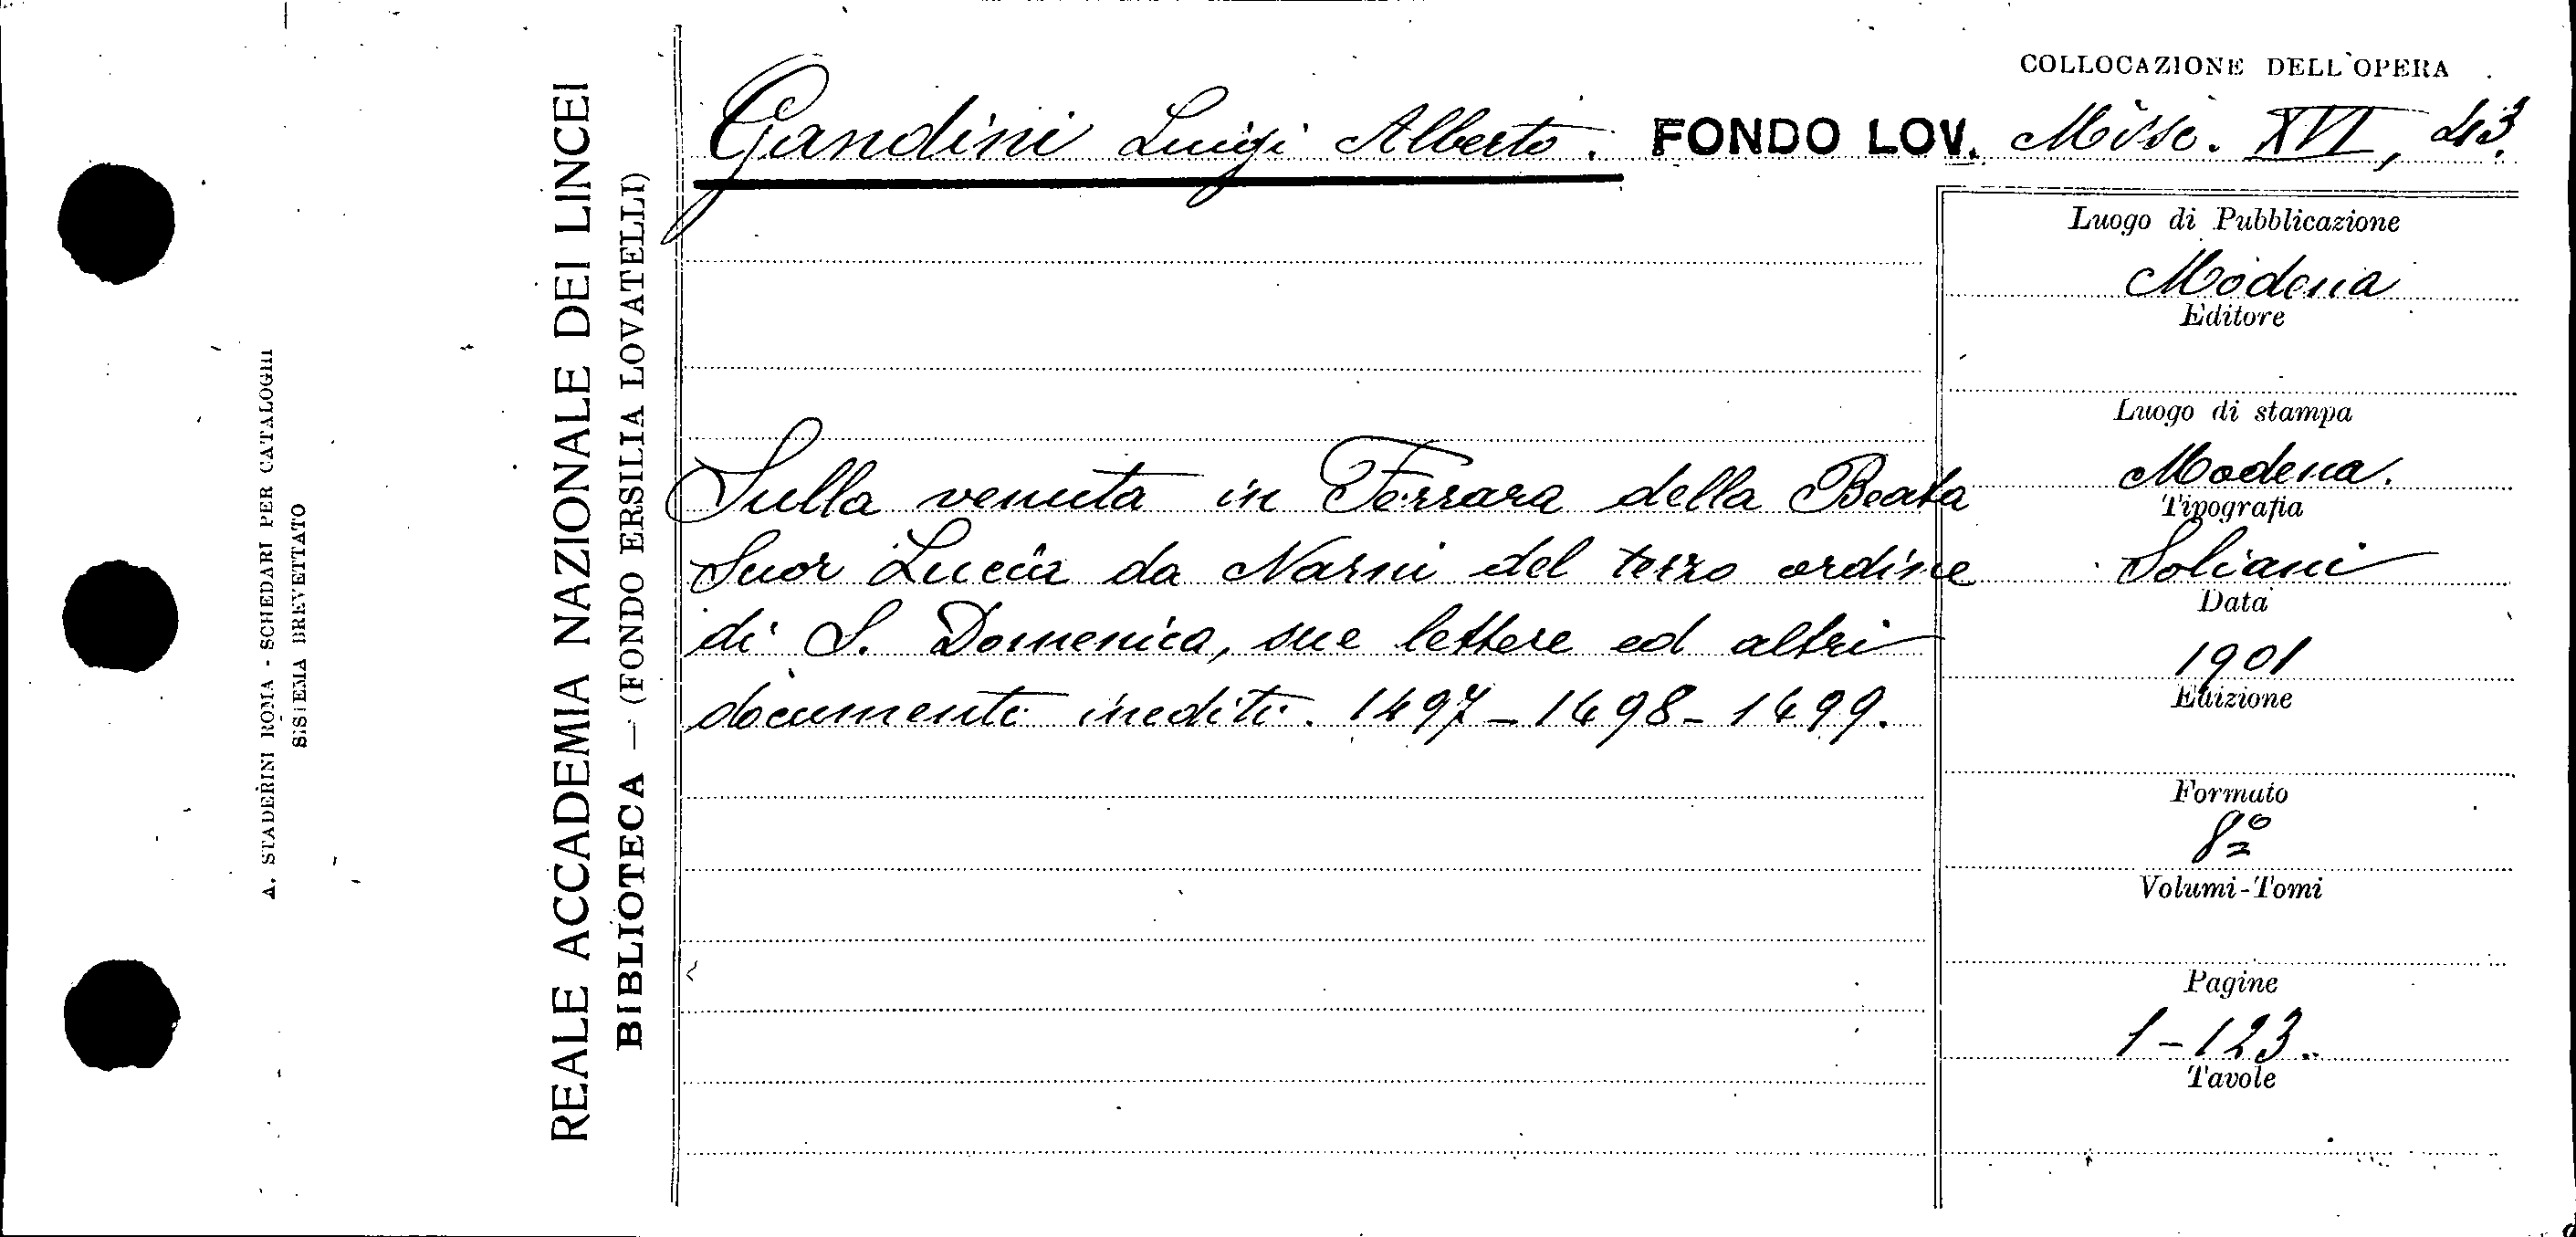 COLLOCAZIONE DELL'OPERA
Gandini Luigi Alberto. FONDO LOV. Misc. XVI, 43.
Luogo di Pubblicazione
Modena
Editore
Luogo di stampa
Modena.
Tipografia
Soliani
Data
1901
Edizione
Formato
8º
Volumi-Tomi
Pagine
1-123.
Tavole
Sulla venuta in Ferrara della Beata
Suor Lucia da Narni del terzo ordine
di S. Domenico, sue lettere ed altri
documenti inediti. 1497-1498-1499.
REALE ACCADEMIA NAZIONALE DEI LINCEI
BIBLIOTECA — (FONDO ERSILIA LOVATELLI)
A. STADERINI ROMA - SCHEDARI PER CATALOGHI
SISTEMA BREVETTATO